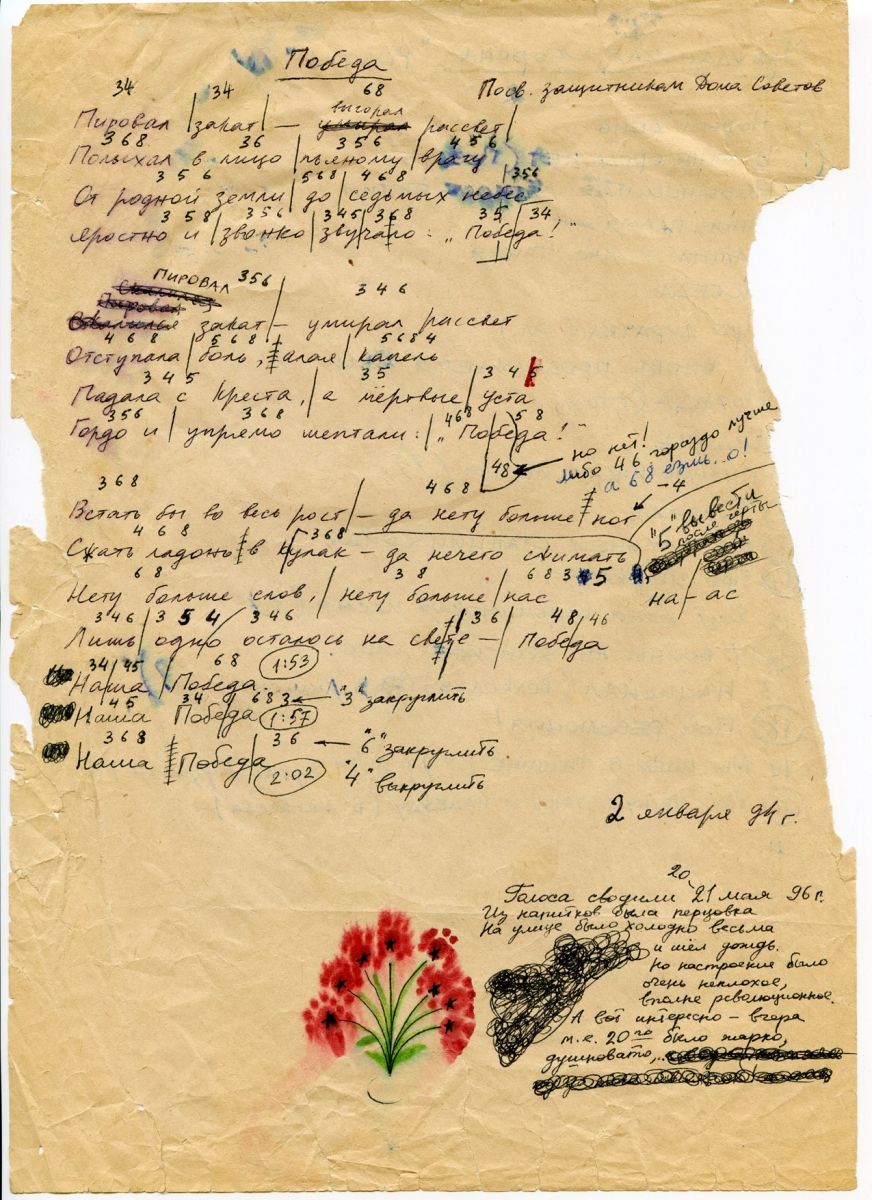 Победа
Посв. защитникам Дома Советов
34 34 68
выгорал
Пировал | закат | — умирал рассвет |
368 36 356 456
Полыхал в лицо | пьяному | врагу
356 568 468 356
От родной земли | до | седьмых небес
358 356 345 368 35 34
Яростно и | звонко | звучало : „Победа!"
ПИРОВАЛ 356 346
Скалился
Пировал
Скалился закат | — умирал рассвет
468 568 5684
Отступала | боль, алая | капель
345 35 345
Падала с креста, | а мёртвые | уста
356 368 468 58
Гордо и | упрямо шептали : | „Победа!"
48 ← но нет!
либо 46 гораздо лучше
а 68 езмь...о!
368 468 – 4
Встать бы во весь рост | — да нету больше ног
"5" вывести
после черты
468 368
Сжать ладонь в кулак — да нечего сжимать
68 38 683 5
Нету больше слов, | нету больше | нас
на – ас
346 354 346 36 48 46
Лишь | одно осталось на свете — | Победа
34 45 68 1:53
Наша | Победа
45 34 683 ← "3" закруглить
Наша Победа 1:57
368 36 ← "6" закруглить
Наша | Победа 2:02 "4" выкруглить
2 января 94 г.
20,
Голоса сводили 21 мая 96 г.
Из напитков была перцовка
На улице было холодно весьма
и шёл дождь.
Но настроение было
очень неплохое,
вполне революционное.
А вот интересно – вчера
т.е. 20го было жарко,
душновато,..